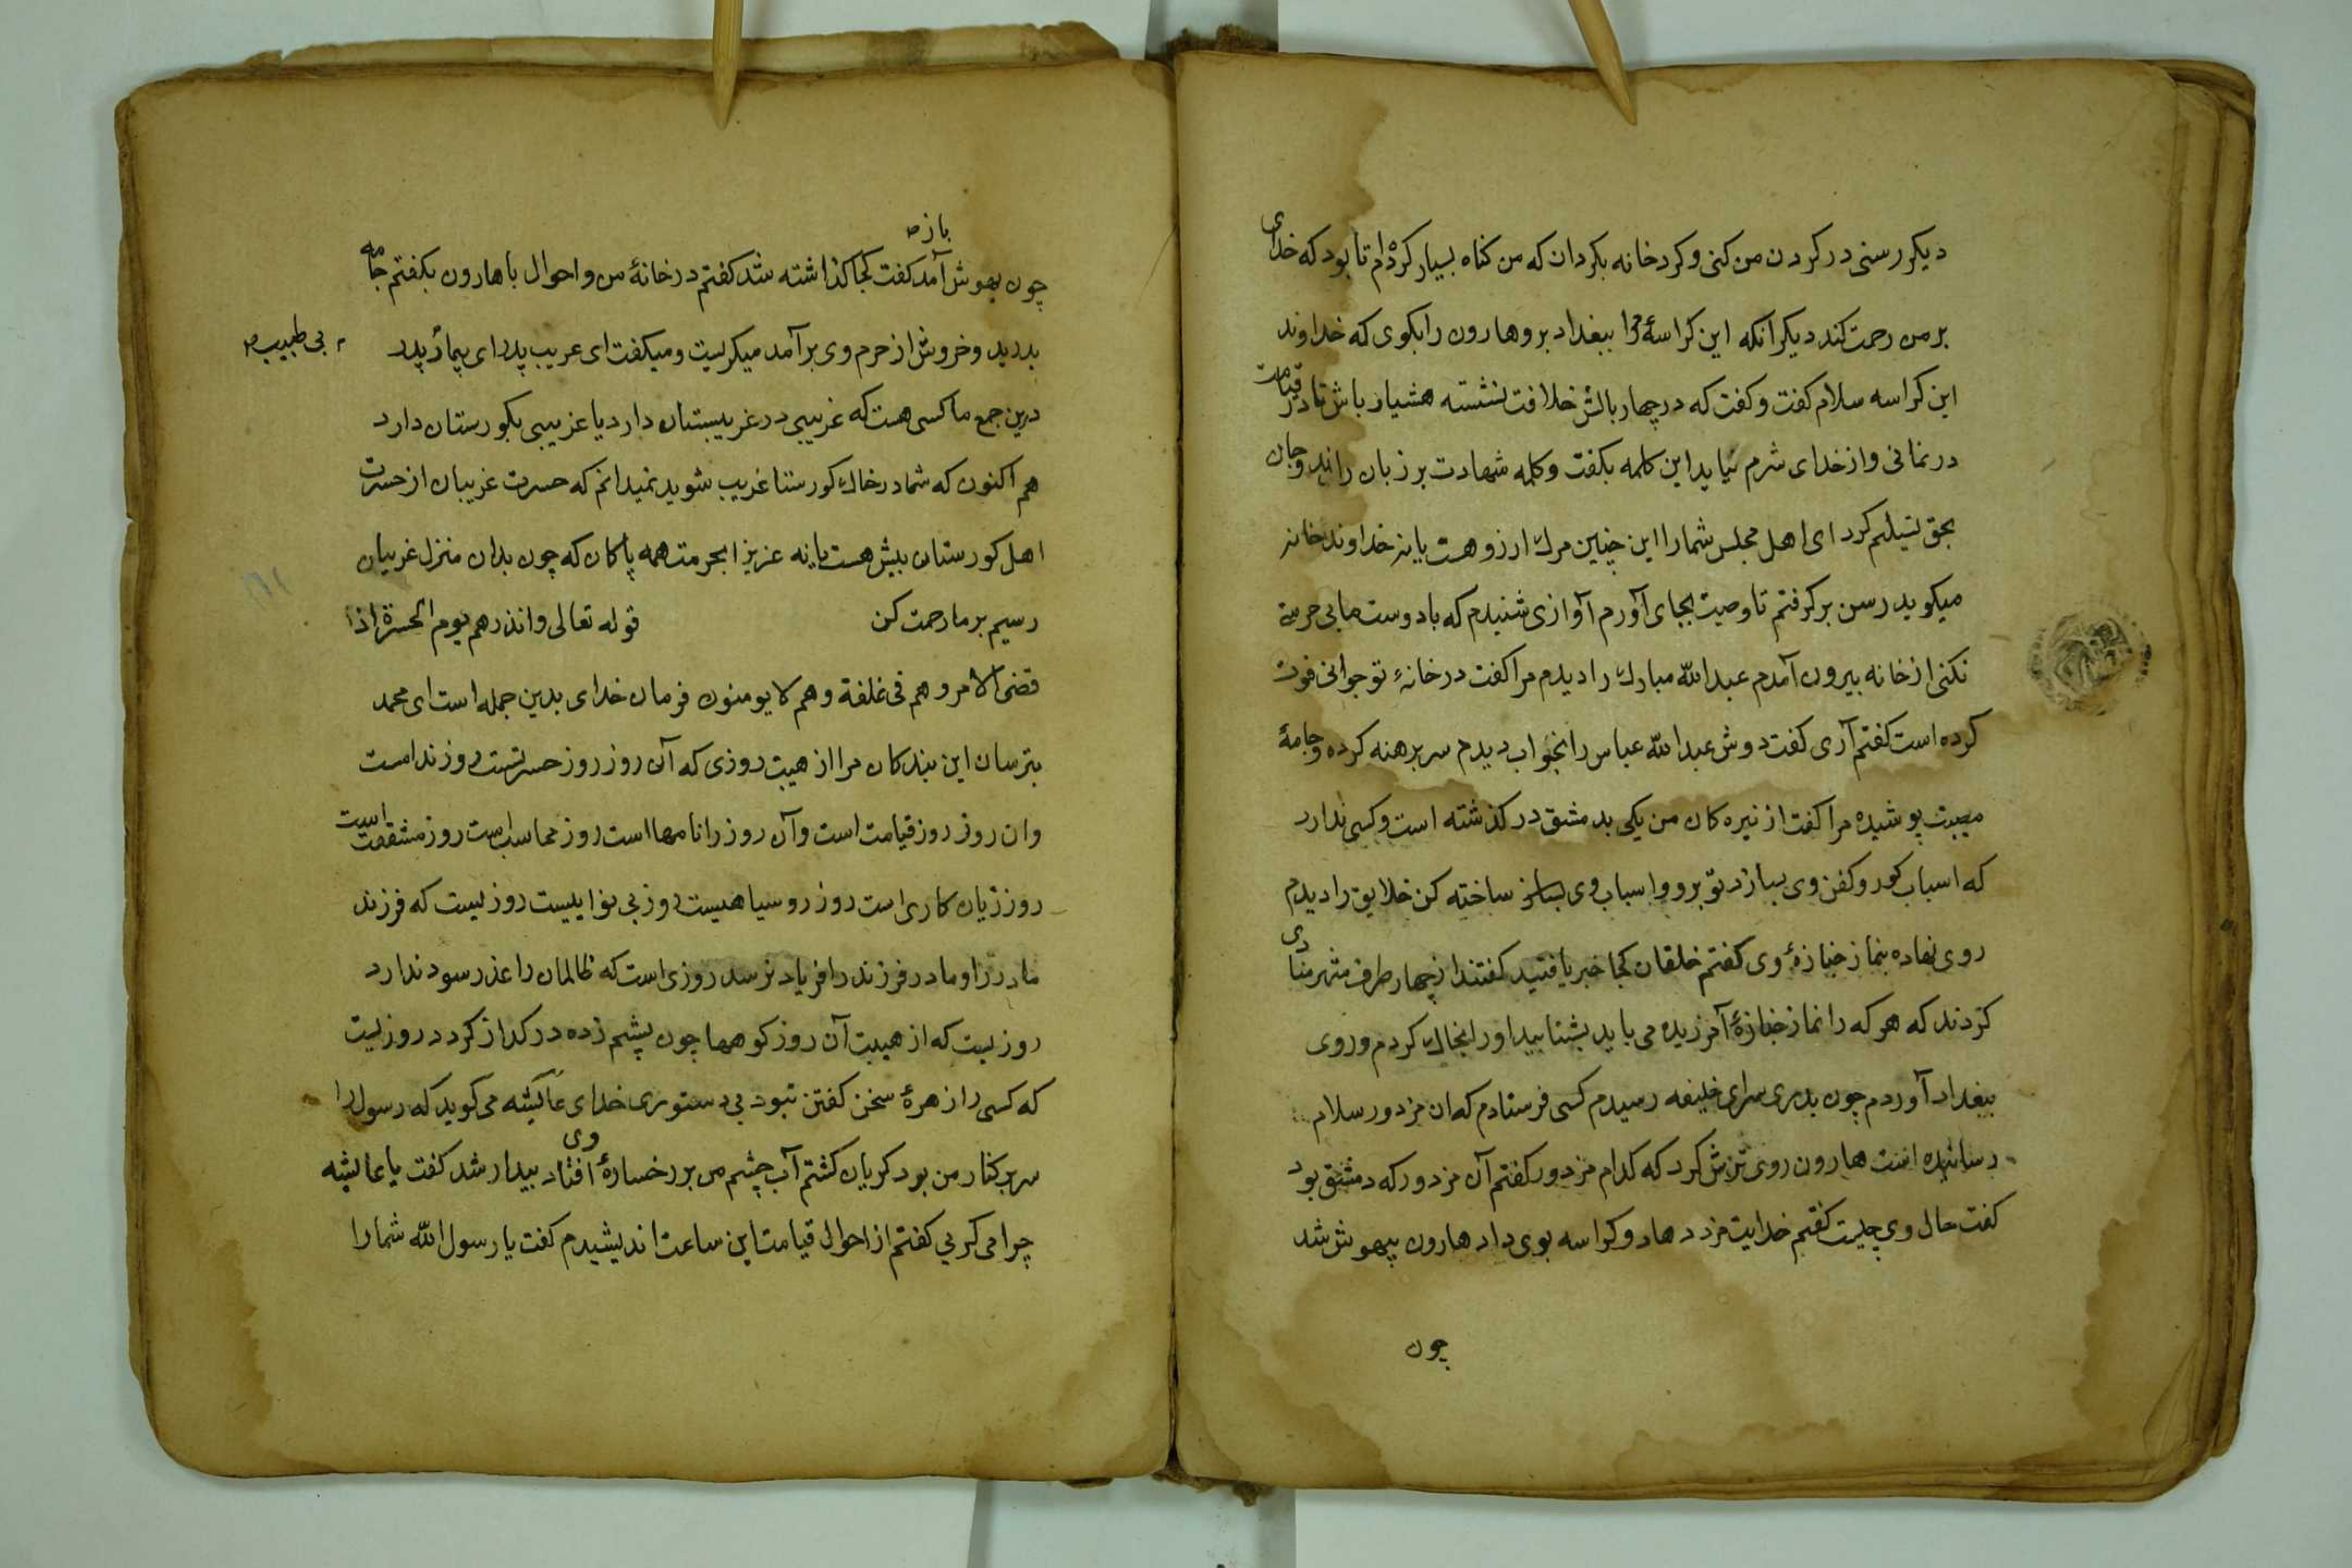 دیکر رسنی در کردن من کنی و کرد خانه بکردان که من کناه بسیار کرده‌ام تا بود که خدای
بر من رحمت کند دیکر آنکه این کراسهٔ مرا ببغداد بر و هارون را بکوی که خداوند
این کراسه سلام کفت و کفت که در چهار بالش خلافت نشسته هشیار باش تا در قیامت
در نمانی و از خدای شرم نیاید این کلمه بکفت و کلمه شهادت بر زبان راند و جان
بحق تسیلم کرد ای اهل مجلس شما را این چنین مرك ارزو هست یا نه خداوند خانه
میکوید رسن بر کرفتم تا وصیت بجای آورم آوازی شنیدم که با دوست ما بی حرمتی
نکنی از خانه بیرون آمدم عبدالله مبارك را دیدم مرا کفت در خانهٔ تو جوانی فوت
کرده است کفتم آری کفت دوش عبدالله عباس را بخواب دیدم سر برهنه کرده و جامهٔ
مصیبت پوشیده مرا کفت از نبیره کان من یکی بدمشق در کذشته است و کسی ندارد
که اسباب کور و کفن وی بسازد تو برو و اسباب وی ساخته کن خلایق را دیدم
روی نهاده بنماز جنازهٔ وی کفتم خلقان کجا خبر یافتید کفتند از چهار طرف شهر منادی
کردند که هر که را نماز جنازهٔ آمرزیده می باید بشتابید او را بخاك کردم و روی
ببغداد آوردم چون بدر سرای خلیفه رسیدم کسی فرستادم که ان مزدور سلام
رسانیده است هارون روی ترش کرد که کدام مزدور کفتم آن مزدور که دمشق بود
کفت حال وی چیست کفتم خدایت مزد دهاد و کراسه بوی داد هارون بیهوش شد
چون
باز ص
چون بهوش آمد کفت کجا کذاشته شد کفتم در خانهٔ من و احوال با هارون بکفتم جامه
بدرید و خروش از حرم وی برآمد میکریست و میکفت ای غریب پدر ای بیمار پدر
بی طبیب ص
درین جمع ما کسی هست که غریبی در غریبستان دارد یا غریبی بکورستان دارد
هم اکنون که شما در خاك کورستا غریب شوید نمیدانم که حسرت غریبان از حسرت
اهل کورستان بیش هست یا نه عزیزا بحرمت همه پاکان که چون بدان منزل غریبان
رسیم بر ما رحمت کن قوله تعالی وانذرهم یوم الحسرة اذا
قضی الامر وهم فی غلفة وهم لا یومنون فرمان خدای بدین جمله است ای محمد
بترسان این بندکان مرا از هیبت روزی که آن روز روز حسرتست روز ندامست
و ان روز روز قیامت است و آن روز را نامها است روز محاسب است روز مشقت است
روز زیان کاری است روز رو سیاهیست روز بی نوایست روزیست که فرزند
مادر را و مادر فرزند را فریاد نرسد روزی است که ظالمان را عذر سود ندارد
روزیست که از هیبت آن روز کوهها چون پشم زده در کداز کردد روزیست
که کسی را زهرهٔ سخن کفتن نبود بی دستوری خدای عایشه می کوید که رسول را
سر بر کنار من بود کریان کشتم آب چشم من بر رخسارهٔ وی افتاد بیدار شد کفت یا عایشه
چرا می کریی کفتم از احوال قیامت این ساعت اندیشیدم کفت یا رسول الله شما را